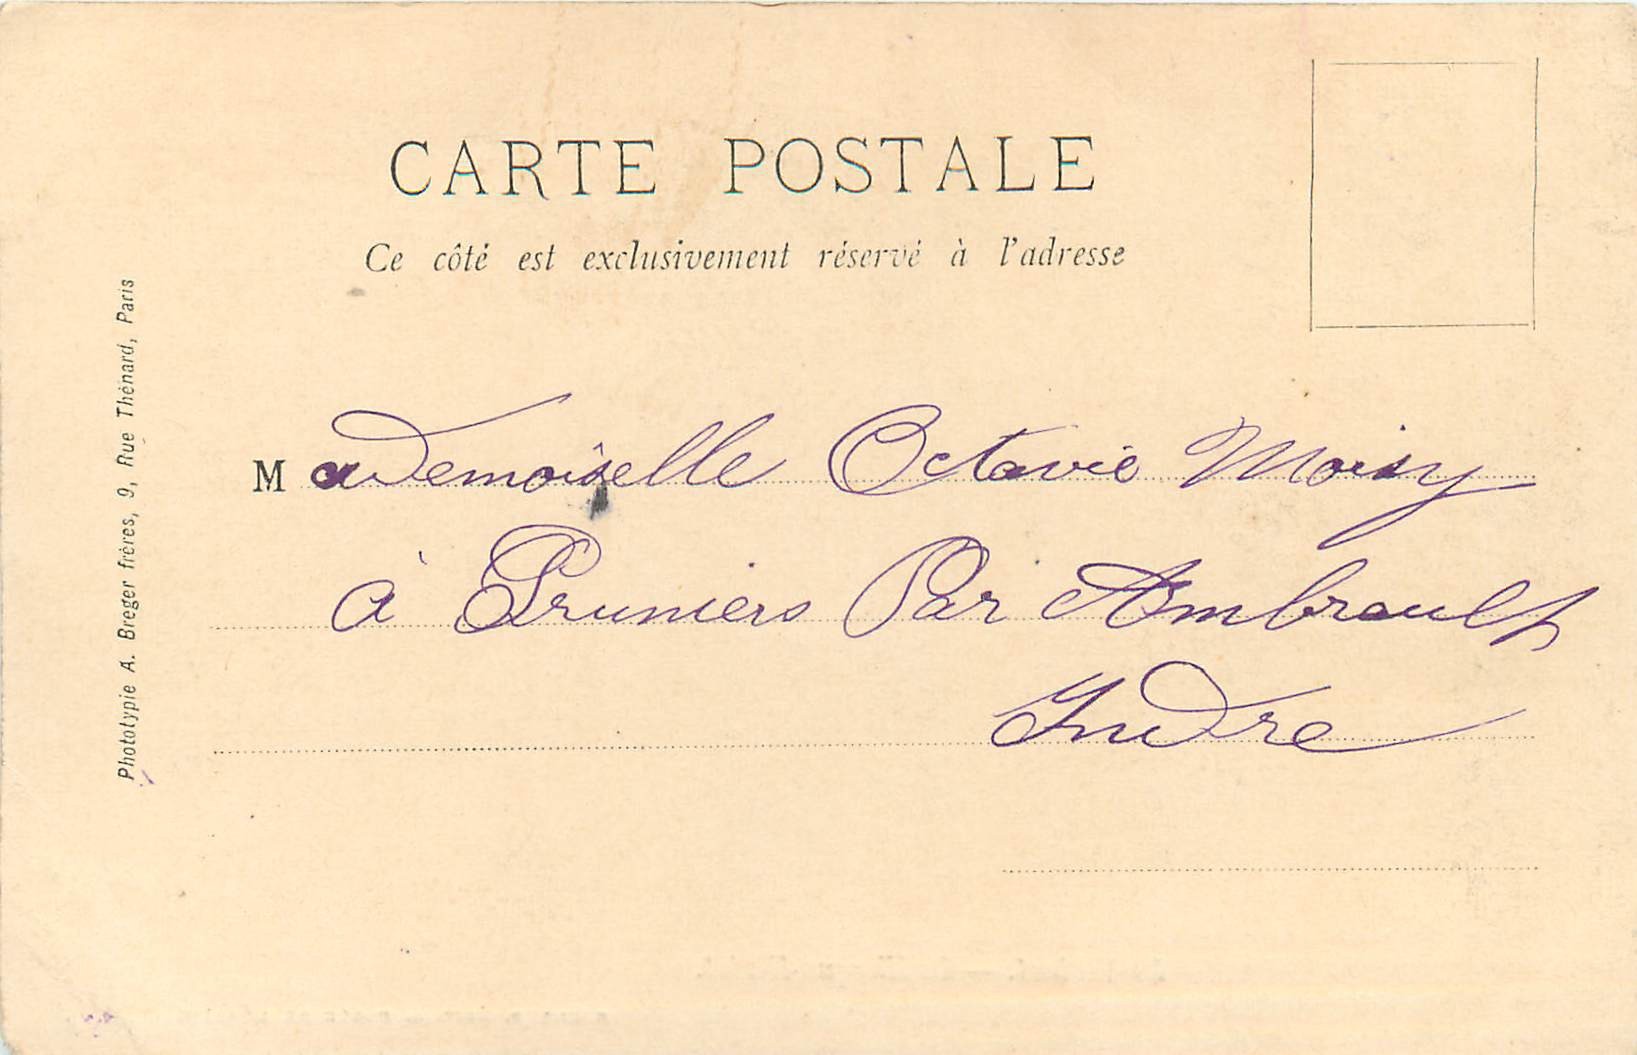 CARTE POSTALE
Ce côté est exclusivement réservé à l'adresse
Mademoiselle Octavie Moisy
à Pruniers Par Ambrault
Indre
Phototypie A. Breger frères, 9, Rue Thénard, Paris